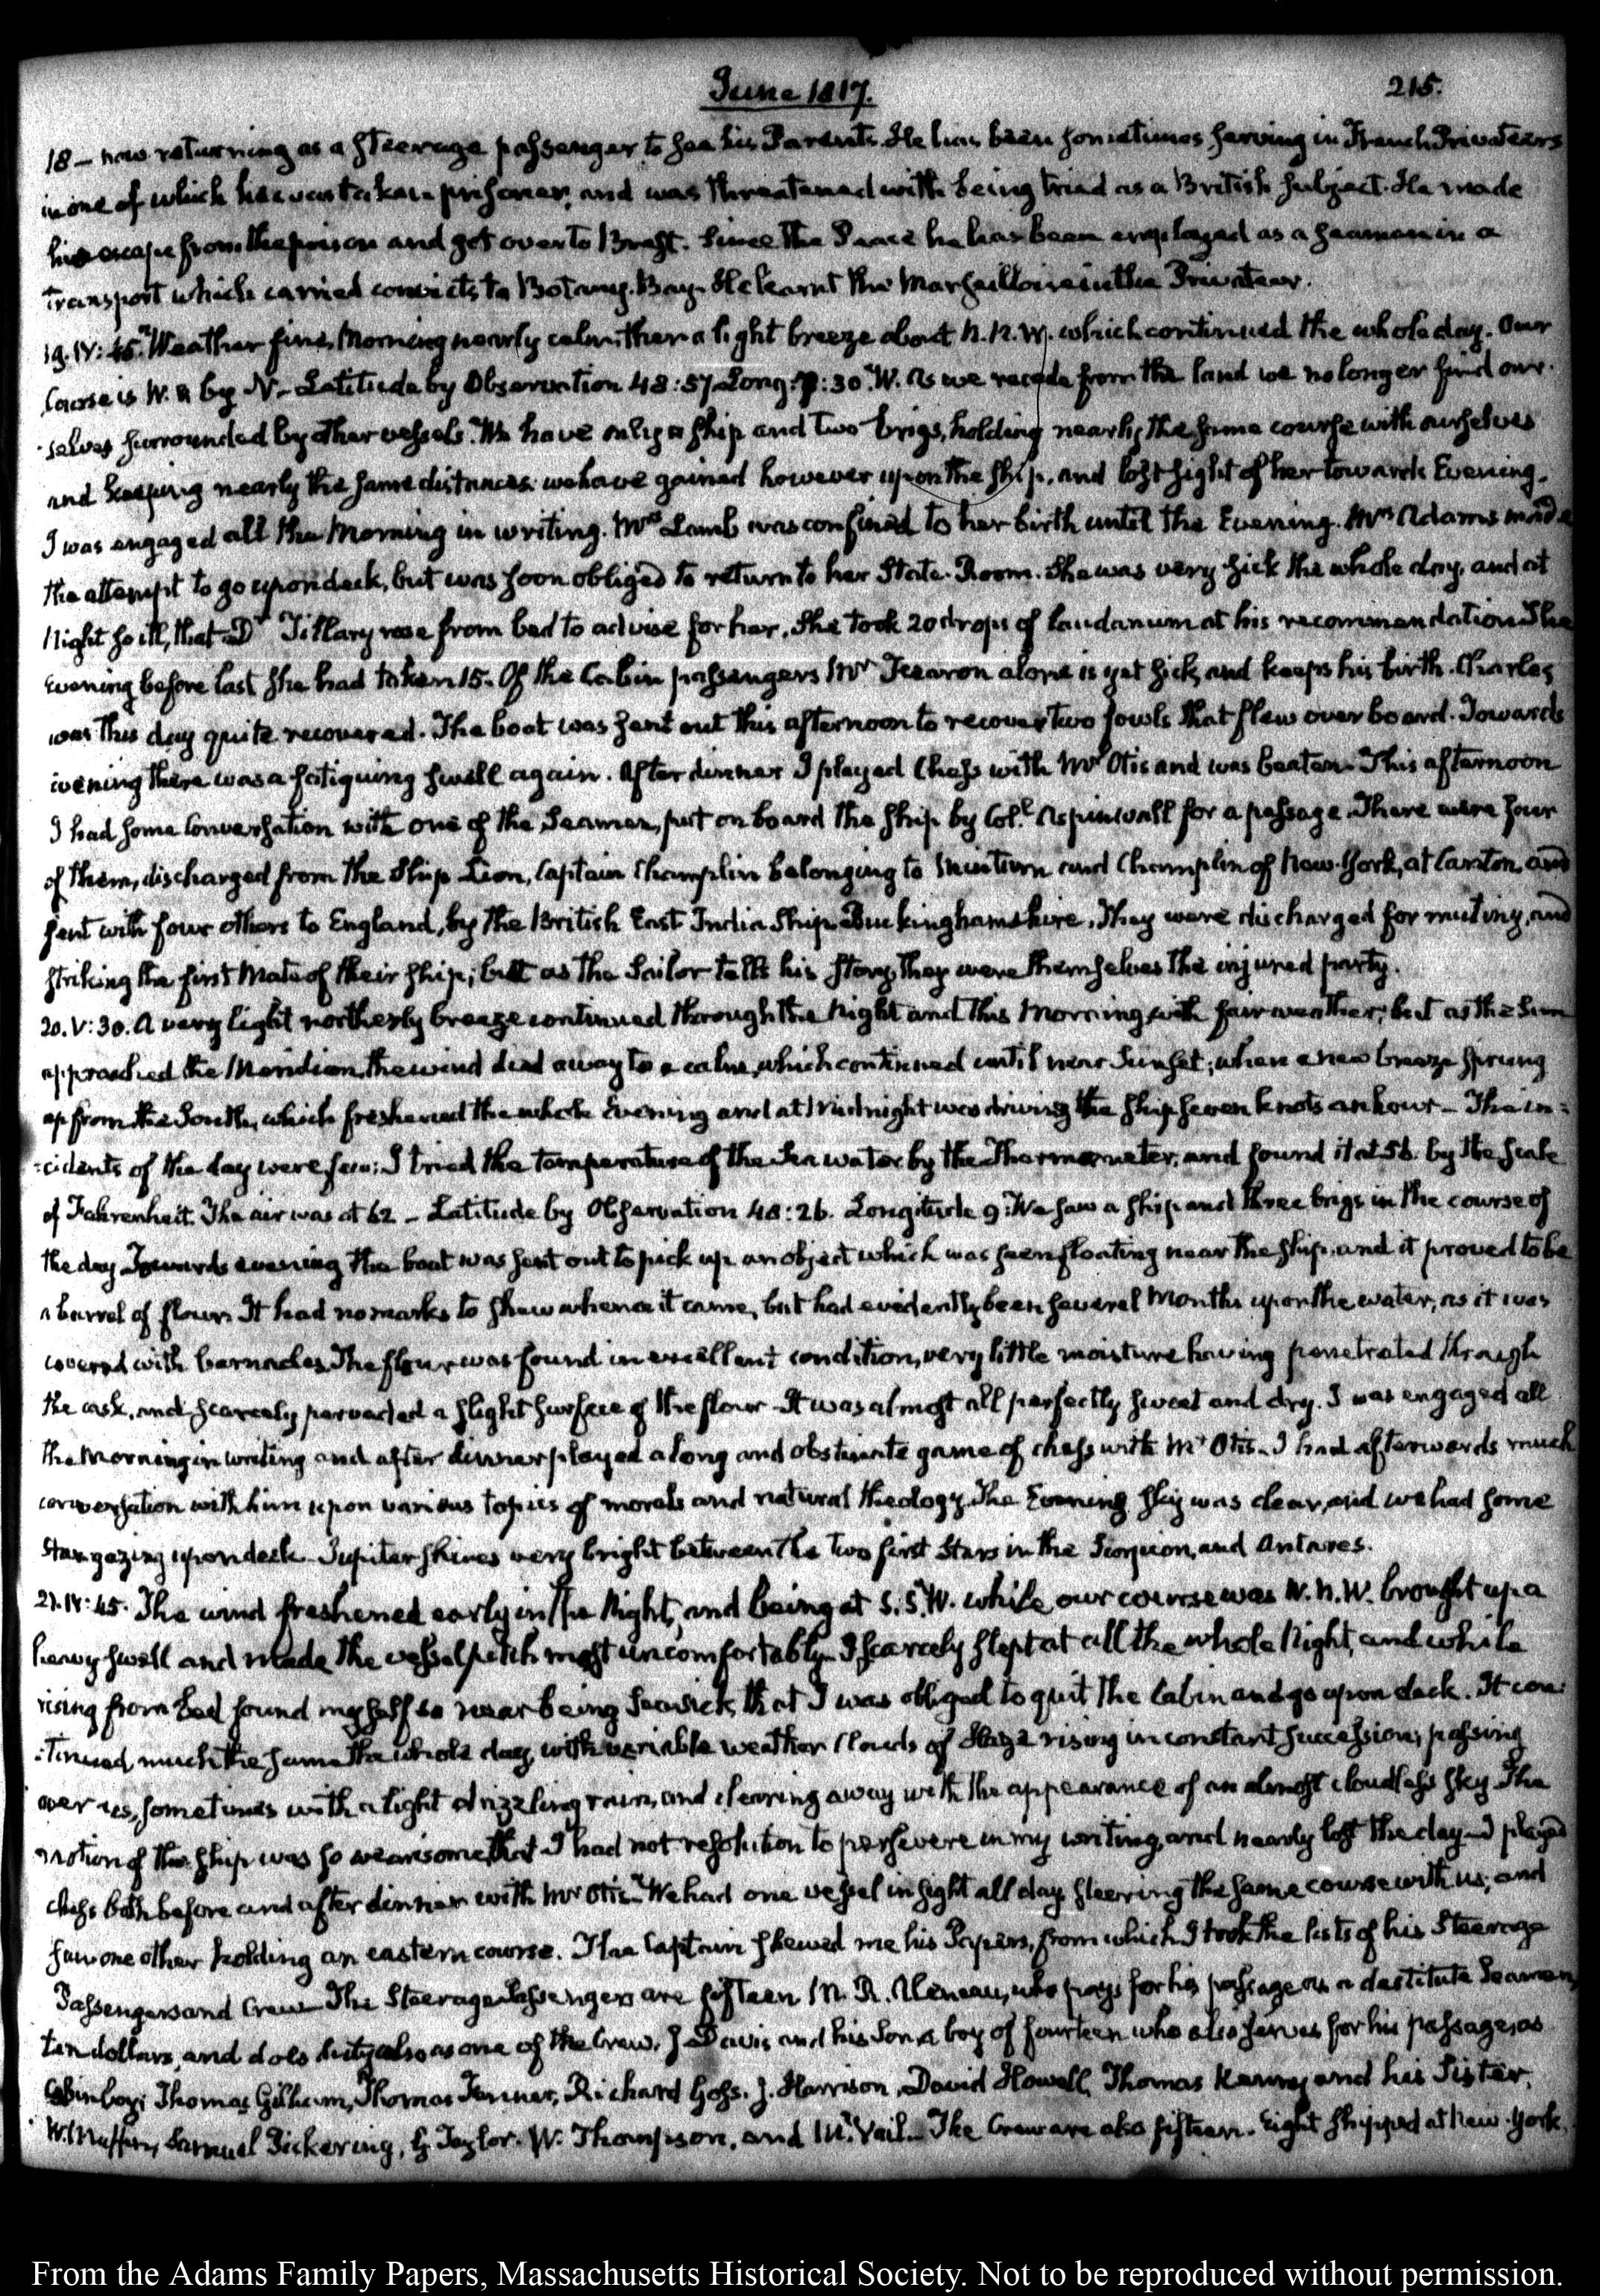 June 1817. 215.
18 – now returning as a steerage passenger to see his Parents. He has been sometimes serving in French Privateers
in one of which he was taken prisoner, and was threatened with being tried as a British subject. He made
his escape from the prison and got over to Brest. Since the Peace he has been employed as a seaman in a
transport which carried convicts to Botany-Bay. He learnt the Marseilloise in the Privateer.
19. IV: 45. Weather fine. Morning nearly calm: then a light breeze about N.N.W. which continued the whole day. Our
Course is W. by N. – Latitude by Observation 48:57 Long: :30. W. As we recede from the land we no longer find our-
-selves surrounded by other vessels. We have only a ship and two brigs, holding nearly the same course with ourselves
and keeping nearly the same distances. we have gained however upon the ship, and lost sight of her towards Evening.
I was engaged all the Morning in writing. Mrs Lamb was confined to her birth until the Evening. Mrs Adams made
the attempt to go upon deck, but was soon obliged to return to her State-Room. She was very sick the whole day, and at
Night so ill, that Dr Tillary rose from bed to advise for her. She took 20 drops of laudanum at his recommendation. The
evening before last she had taken 15. Of the Cabin passengers Mr Fearon alone is yet sick, and keeps his birth. Charles
was this day quite recovered. The boat was sent out this afternoon to recover two fowls that flew over board. Towards
evening there was a fatiguing swell again. After dinner I played Chess with Mr Otis and was beaten. This afternoon
I had some Conversation with one of the Seamen, put on board the ship by Col.l Aspinwall for a passage. There were four
of them, discharged from the Ship Lion, Captain Champlin belonging to Minturn and Champlin of New-York, at Canton, and
sent with four others to England, by the British East India Ship Buckinghamshire. They were discharged for mutiny, and
striking the first Mate of their ship; but as the Sailor tells his story, they were themselves the injured party.
20. V: 30. A very light northerly breeze continued through the Night and this Morning, with fair weather; but as the Sun
approached the Meridian, the wind died away to a calm, which continued until near Sunset; when a new breeze sprung
up from the South, which freshened the whole Evening and at Midnight was driving the ship seven knots an hour – The in=
=cidents of the day were few: I tried the temperature of the Sea water by the Thermometer, and found it at 56. by the scale
of Fahrenheit. The air was at 62 – Latitude by Observation 48:26. Longitude 9: We saw a ship and three brigs in the course of
the day. Towards evening the boat was sent out to pick up an object which was seen floating near the ship, and it proved to be
a barrel of flour. It had no marks to shew whence it came, but had evidently been several Months upon the water, as it was
covered with barnacles. The flour was found in excellent condition, very little moisture having penetrated through
the cask, and scarcely pervaded a slight surface of the flour – It was almost all perfectly sweet and dry. I was engaged all
the Morning in writing and after dinner played a long and obstinate game of chess with Mr Otis – I had afterwards much
conversation with him upon various topics of morals and natural theology. The Evening sky was clear, and we had some
Star gazing upon deck. Jupiter shines very bright between the two first Stars in the Scorpion, and Antares.
21. IV: 45. The wind freshened early in the Night, and being at S.S.W. while our course was W.N.W. brought up a
heavy swell and made the vessel pitch most uncomfortably. I scarcely slept at all the whole Night, and while
rising from bed found myself so near being Seasick, that I was obliged to quit the Cabin and go upon deck. It con-
-tinued much the same the whole day, with variable weather. Clouds of Haze rising in constant succession, passing
over us, sometimes with a light drizzling rain, and clearing away with the appearance of an almost cloudless sky. The
motion of the ship was so wearisome, that I had not resolution to persevere in my writing, and nearly lost the day – I played
chess both before and after dinner with Mr Otis – We had one vessel in sight all day steering the same course with us; and
saw one other holding an eastern course. The Captain shewed me his Papers, from which I took the lists of his Steerage
Passengers and Crew – The Steerage Passengers are fifteen. N. R. who pays for his passage as a destitute Seaman
ten dollars, and does duty also as one of the Crew. J Davis and his Son a boy of fourteen who also serves for his passage, as
Cabin boy: Thomas Gilham, Thomas Fenner, Richard Goss. J. Harrison, David Howell, Thomas and his Sister,
W. Samuel Pickering, G. Taylor. W. Thompson, and M. Vail. – The Crew are also fifteen. Eight shipped at New-York.
From the Adams Family Papers, Massachusetts Historical Society. Not to be reproduced without permission.